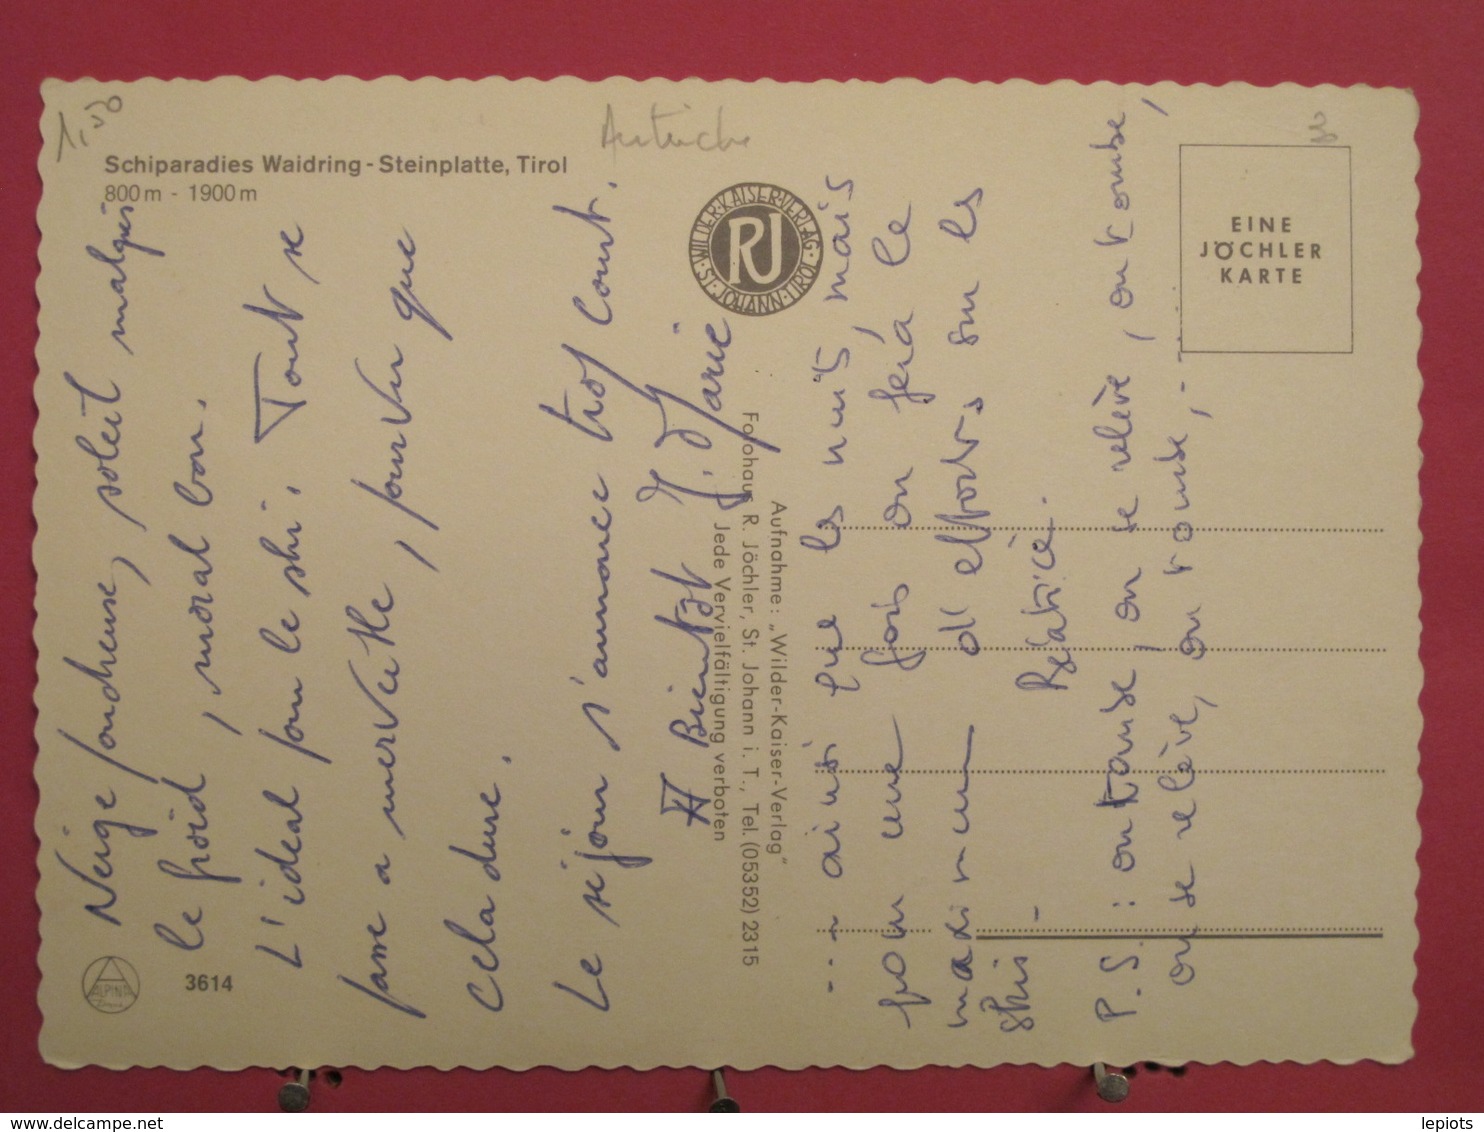 1,50
Autriche
3
Schiparadies Waidring - Steinplatte, Tirol
800 m - 1900 m
WILDER-KAISER-VERLAG
RJ
ST. JOHANN-TIROL
EINE
JÖCHLER
KARTE
Neige poudreuse, soleil malgré
le froid, moral bon.
L'idéal pour le ski. Tout se
passe à merveille, pourvu que
cela dure.
Le séjour s'annonce trop court.
Bientôt J. Marie
Aufnahme: „Wilder-Kaiser-Verlag"
Fotohaus R. Jöchler, St. Johann i. T., Tel. (05352) 2315
Jede Vervielfältigung verboten
... ainsi que les nuits, mais
pour une fois on fera le
maximum d'efforts sur les
skis -
Béatrice.
P.S. : on tombe, on se relève, on tombe,
on se relève, on tombe, - - -
ALPINA
3614
lepiots